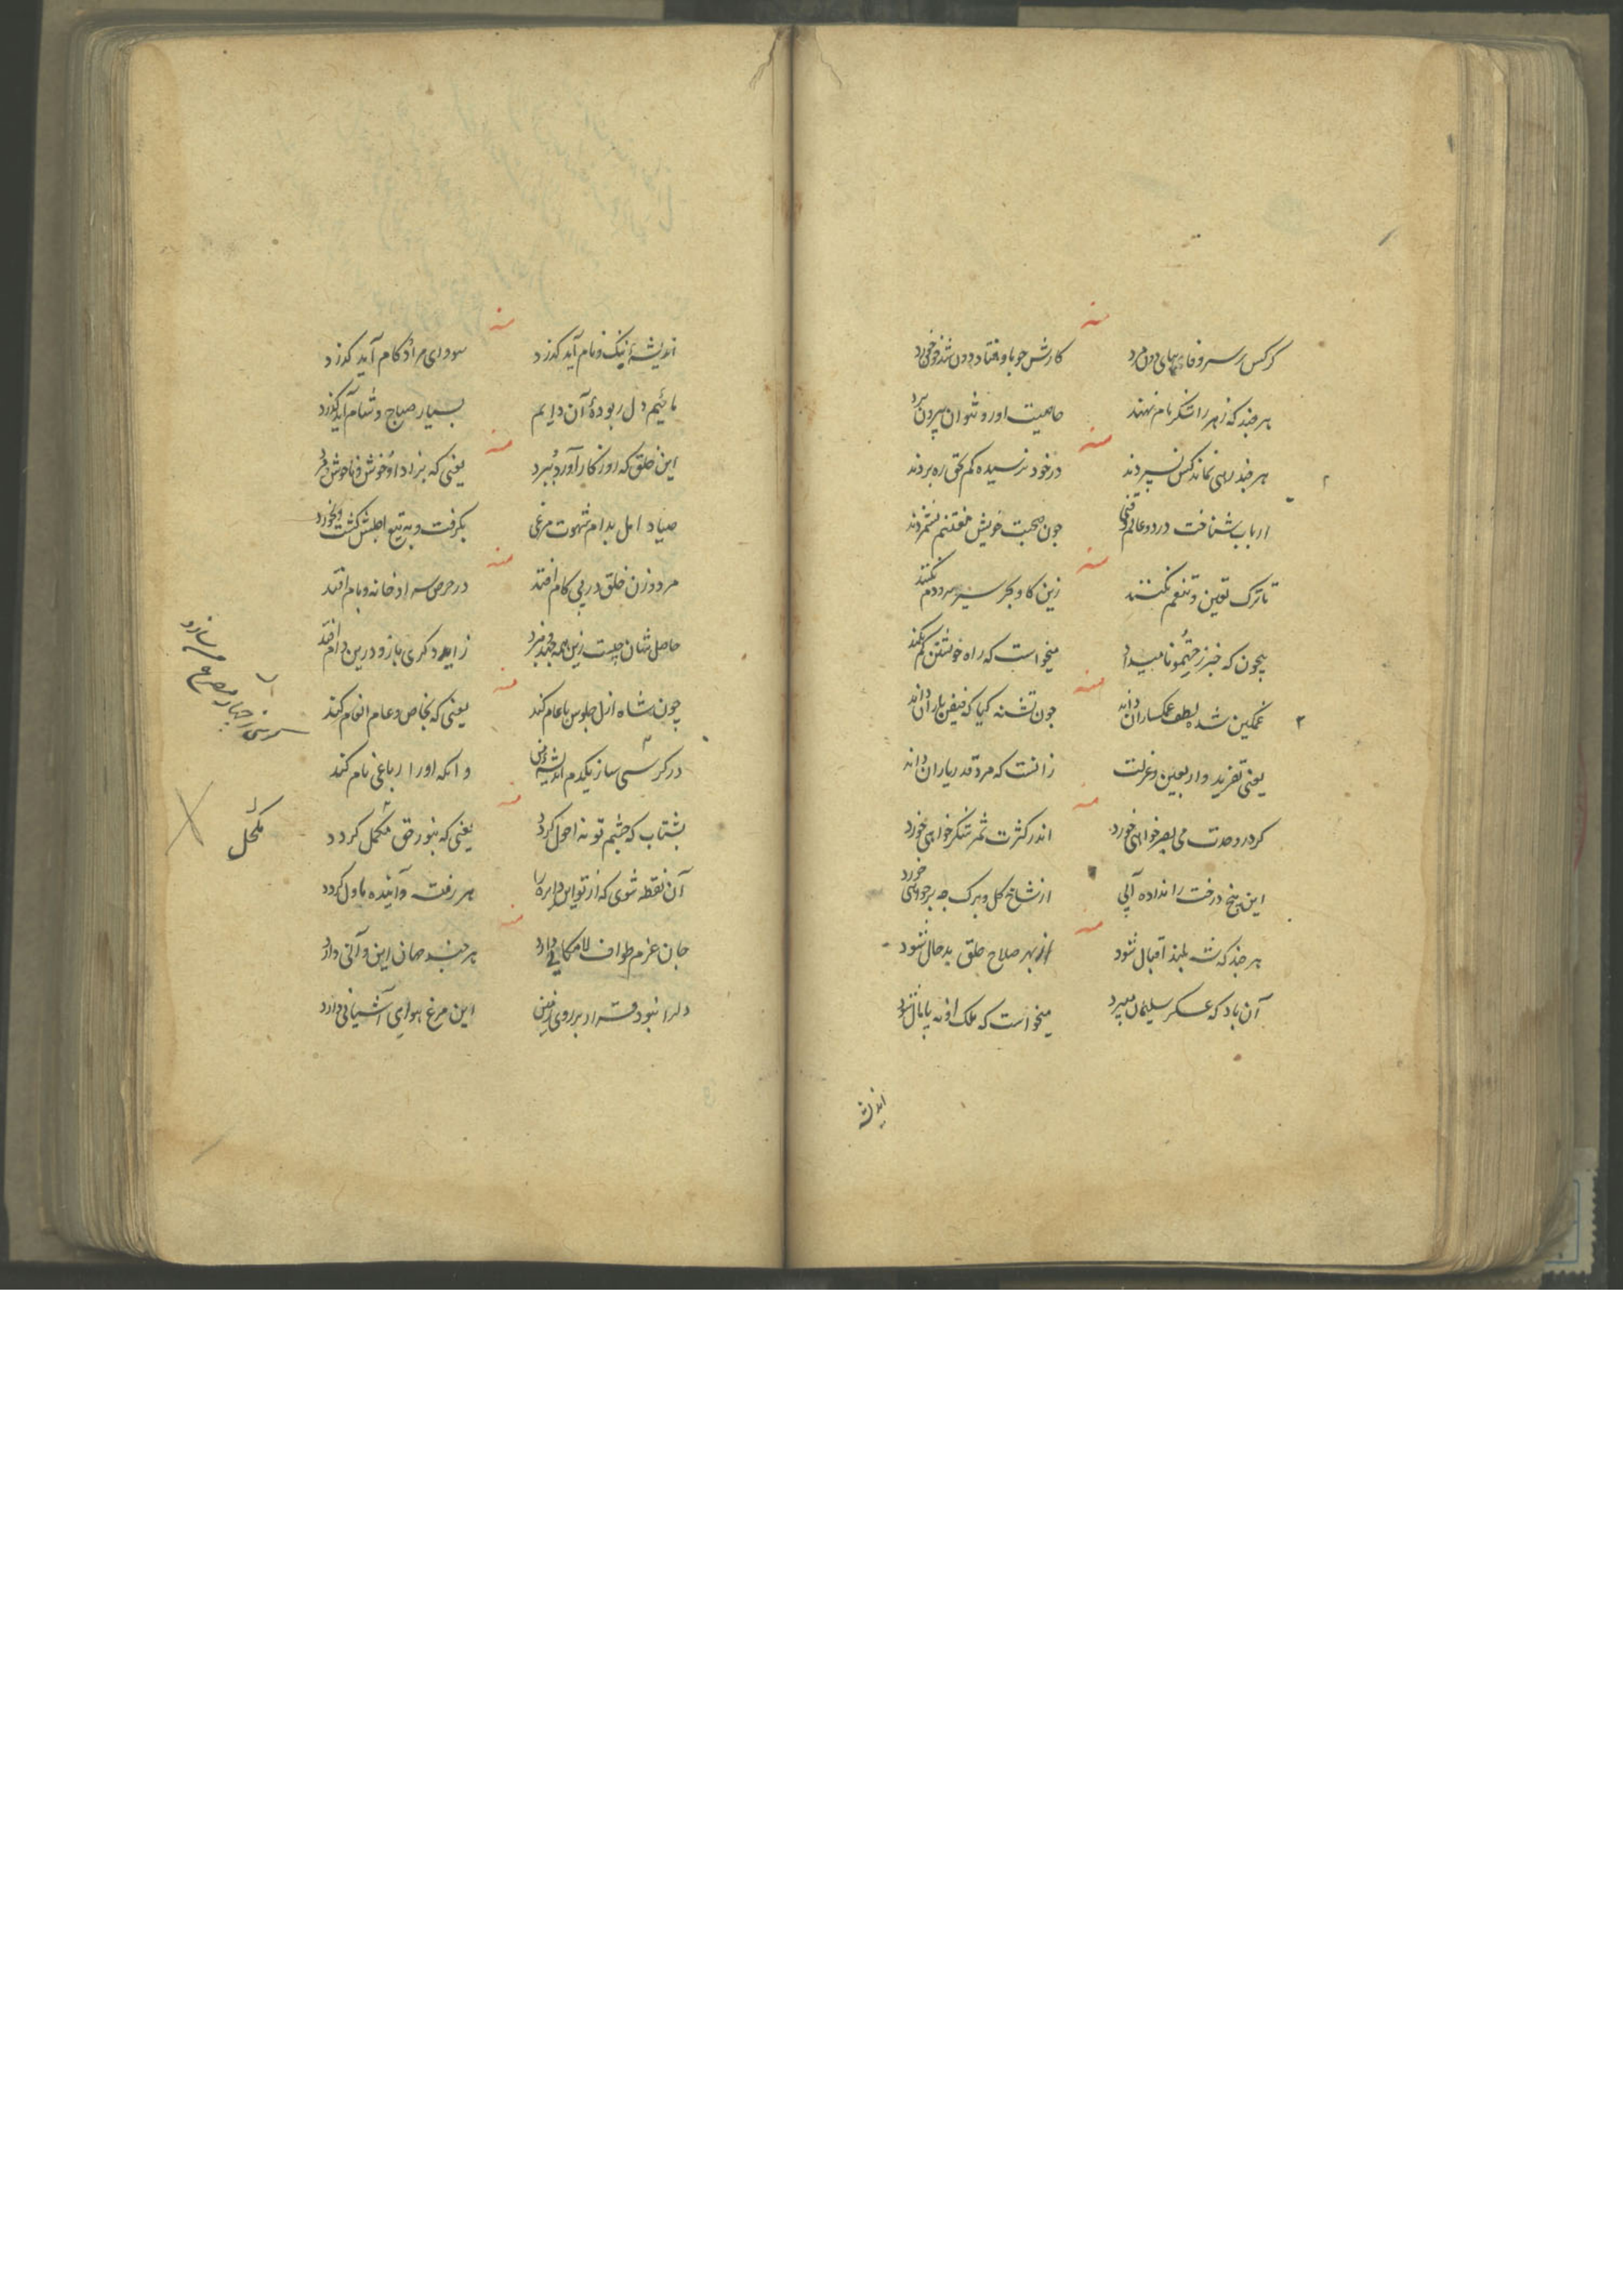 منه
کرکس سر وفا بهای دون مرد کارش چو با وفتاد دون شد و خورد
هر چند که زهر را شکر نام نهند خاصیت او رو نتوان بیرون برد
منه
هر چند رهی نماند کس نسپردند در خود نرسیده کم بحق ره بردند
ارباب شناخت در دو عالم چون صحبت خویش مغتنم نشمردند
منه
تا ترک تعین و تنعم نکنند زین کا و بحر سیر مردم نکنند
بیچون که خبر ز میداد میخواست که راه خویشتن کم نکنند
منه
غمگین شده لطف غمکساران داند چون تشنه کیا که فیض باران داند
یعنی تفرید و اربعین و عزلت زانست که مرد قدر یاران داند
منه
کر در وحدت می بصر خواهی خورد اندر کثرت ثمر شکر خواهی خورد
این بیخ درخت را نداده آبی از شاخ کل و برک چه بر خواهی خورد
منه
هر چند که شه بلند اقبال شود از بهر صلاح خلق بدحال شود
آن باد که عسکر سلیمان میبرد میخواست که ملک او نه پامال شود
اندیشه
منه
اندیشهٔ نیک و نام آید کذرد سودای مراد و کام آید کذرد
مائیم دل ربودهٔ آن دایم بسیار صباح و شام آید کذرد
منه
این خلق که روزکار آورد و ببرد یعنی که بزاد او خوش و ناخوش و مرد
صیاد امل بدام شهوت مرغی بکرفت و به تیغ اجلش کشت و بخورد
منه
مرد و زن خلق در پی کام افتد در حرص سرا و خانه و بام افتد
حاصل شان چیست زین همه جهد بنرد زاید دکری باز و درین دام افتد
منه
چون شاه ازل جلوس با عام کند یعنی که بخاص و عام انعام کند
در کرسی ساز یکدم اندیشهٔ من وانکه او را رباعی نام کند
کرسی از چهار مصرع می سازد
منه
بشتاب که چشم تو نه احول کردد یعنی که بنور حق مکمل کردد
مکحل
آن نقطه شوی که از تو این دایره را هر رفت و آینده باول کردد
منه
جان عزم طواف لامکانی دارد هر چند جهان این و آنی دارد
دلرا نبود قرار بر روی زمین این مرغ هوای آشیانی دارد